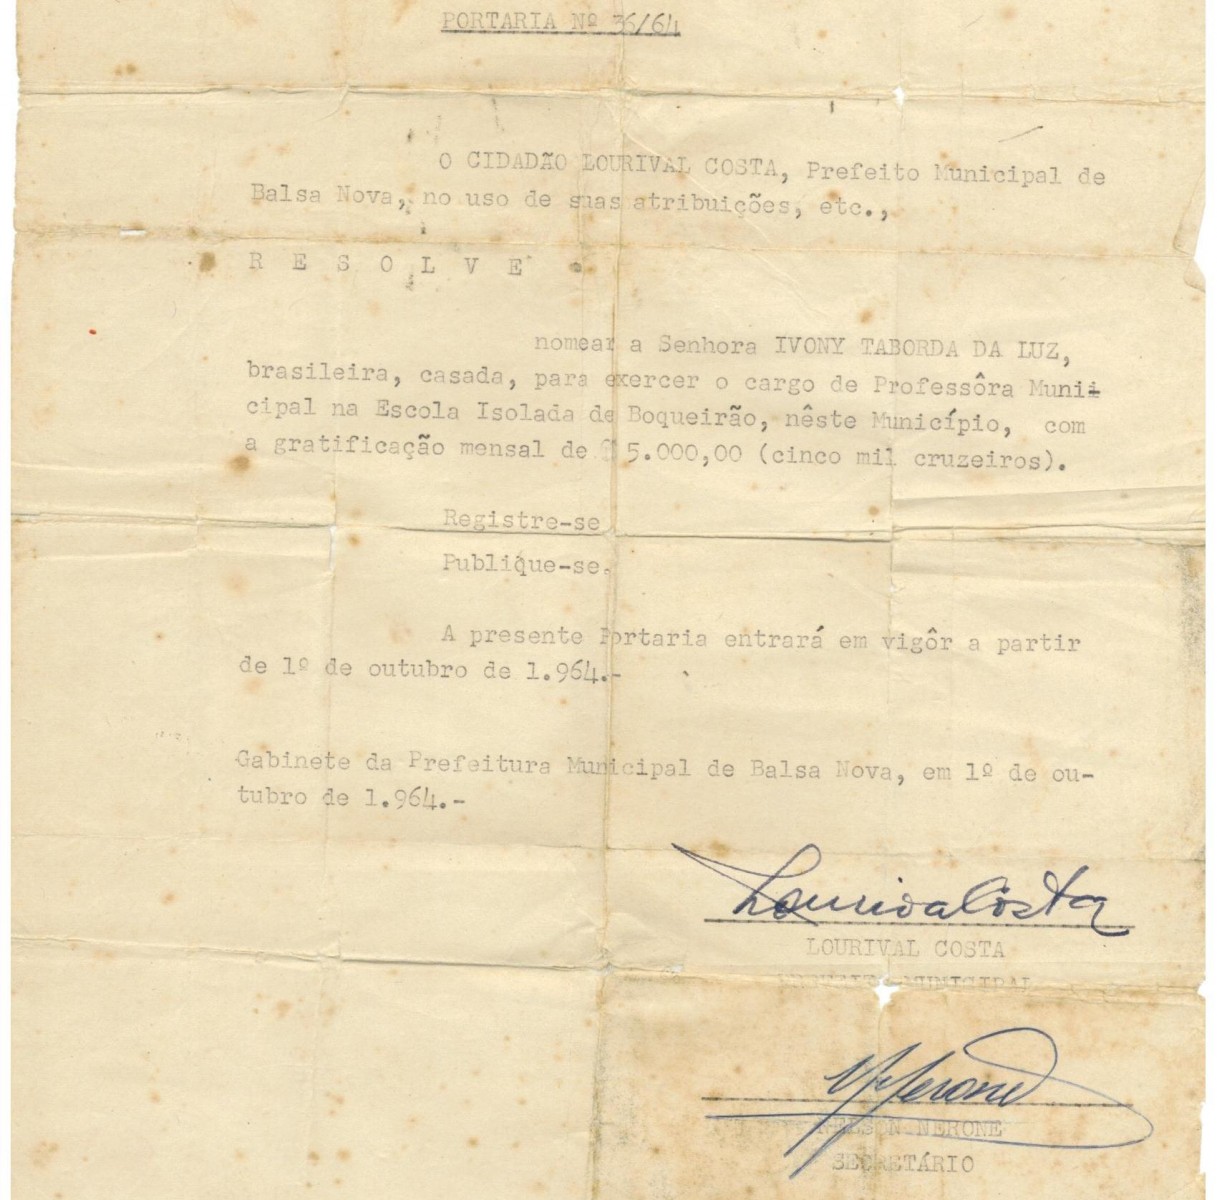 PORTARIA Nº 36/64
O CIDADÃO LOURIVAL COSTA, Prefeito Municipal de
Balsa Nova, no uso de suas atribuições, etc.,
R E S O L V E
nomear a Senhora IVONY TABORDA DA LUZ,
brasileira, casada, para exercer o cargo de Professôra Muni-
cipal na Escola Isolada de Boqueirão, nêste Município, com
a gratificação mensal de 5.000,00 (cinco mil cruzeiros).
Registre-se
Publique-se.
A presente Portaria entrará em vigôr a partir
de 1º de outubro de 1.964.-
Gabinete da Prefeitura Municipal de Balsa Nova, em 1º de ou-
tubro de 1.964.-
Lourival Costa
LOURIVAL COSTA
PREFEITO MUNICIPAL
NNerone
NELSON NERONE
SECRETÁRIO